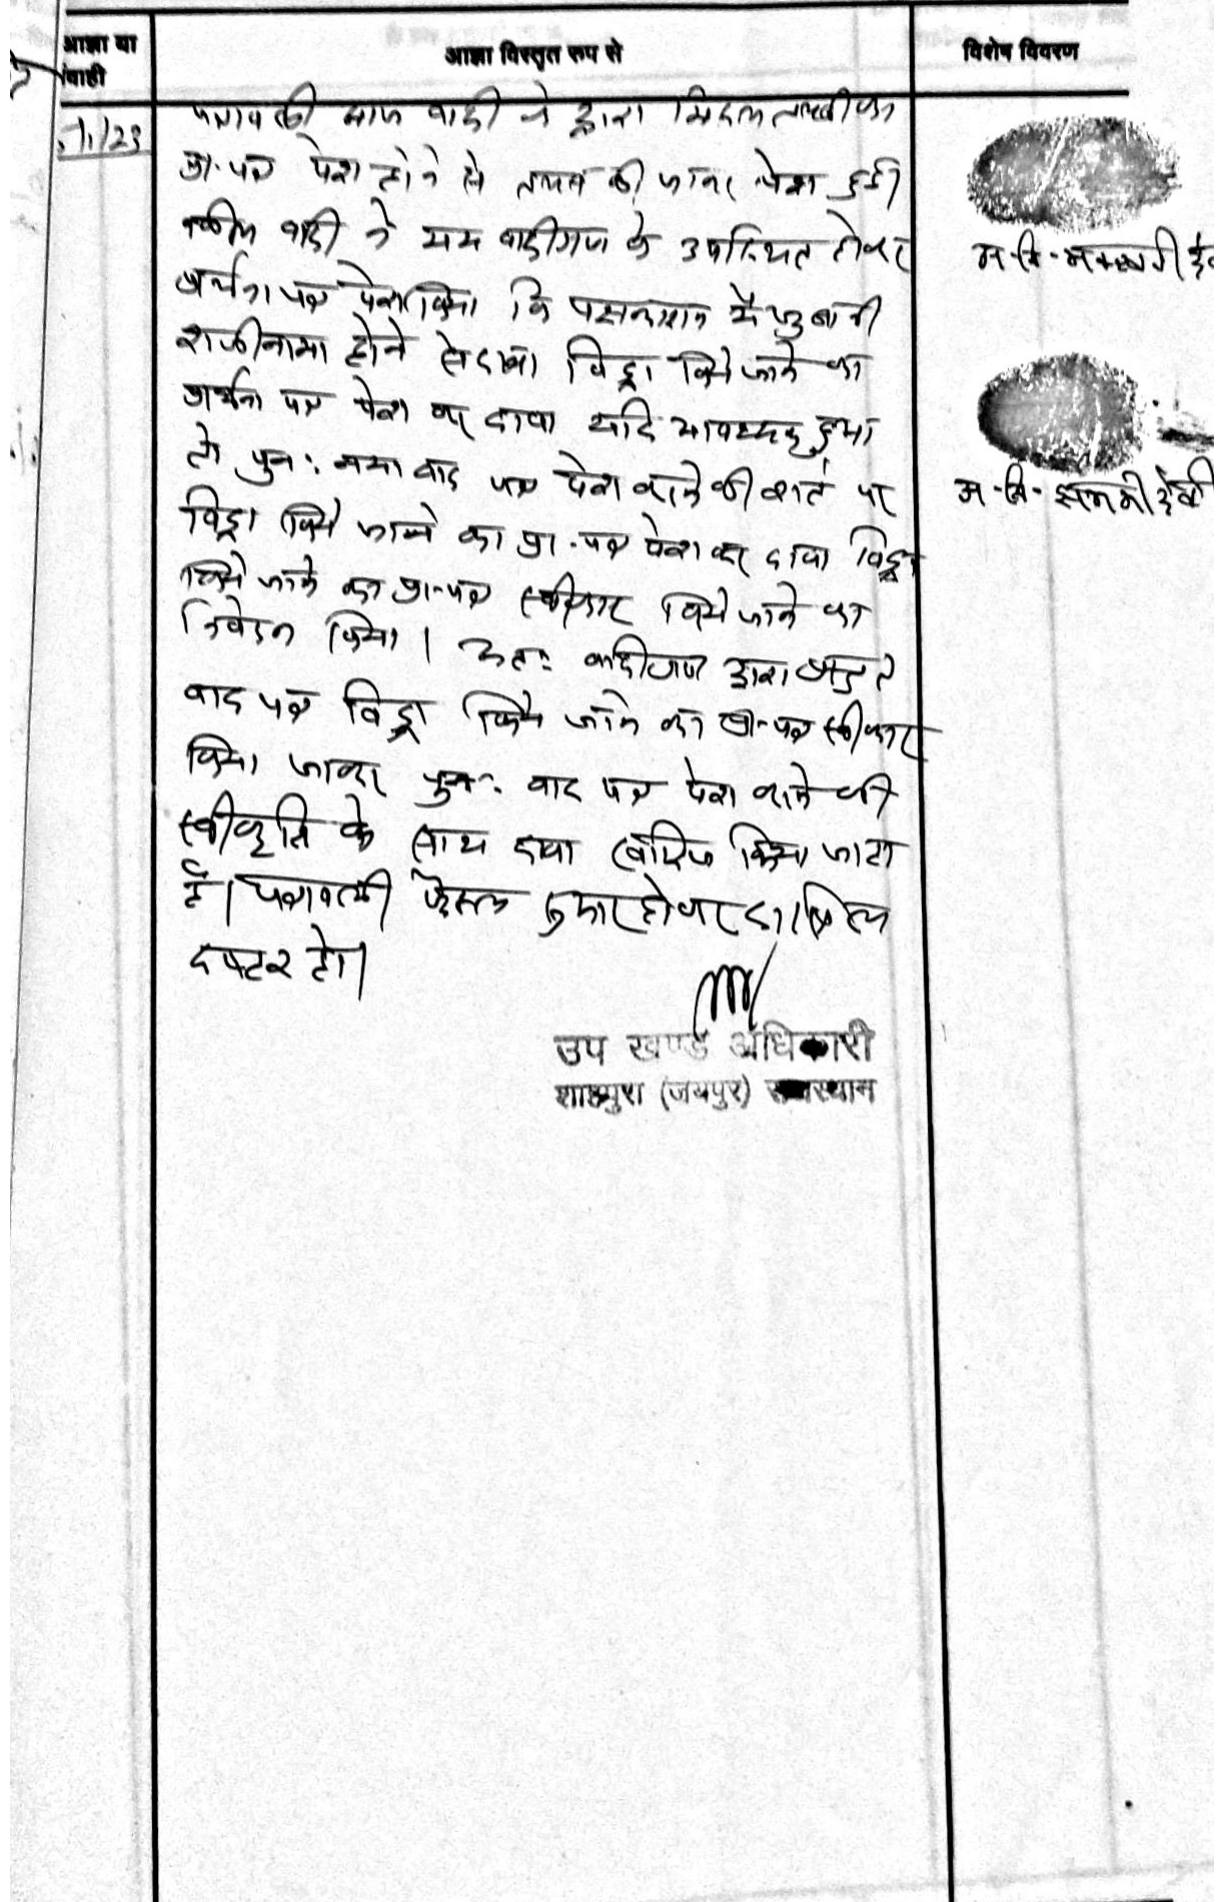 आज्ञा या
वाही
आज्ञा विस्तृत रूप से
विशेष विवरण
/1/23
पत्रावली आज वादी ने द्वारा मिसल तलबी का
प्रा.पत्र पेश होने से तलब की जाकर पेश हुई।
वकील वादी ने मय वादीगण के उपस्थित होकर
प्रार्थना पत्र पेश किया कि पक्षकारान में जुबानी
राजीनामा होने से दावा विड्रा किये जाने का
प्रार्थना पत्र पेश कर दावा यदि आवश्यक हुआ
तो पुनः नया वाद पत्र पेश करने की शर्त पर
विड्रा किये जाने का प्रा.पत्र पेश कर दावा विड्रा
किये जाने का प्रा-पत्र स्वीकार किये जाने का
निवेदन किया। अतः वादीगण द्वारा प्रस्तुत
वाद पत्र विड्रा किये जाने का प्रा-पत्र स्वीकार
किया जाकर पुनः वाद पत्र पेश करने की
स्वीकृति के साथ दावा खारिज किया जाता
है। पत्रावली फैसल शुमार होकर दाखिल
दफ्टर हो।
उप खण्ड अधिकारी
शाहपुरा (जयपुर) राजस्थान
म-नि-
म-नि- देवी